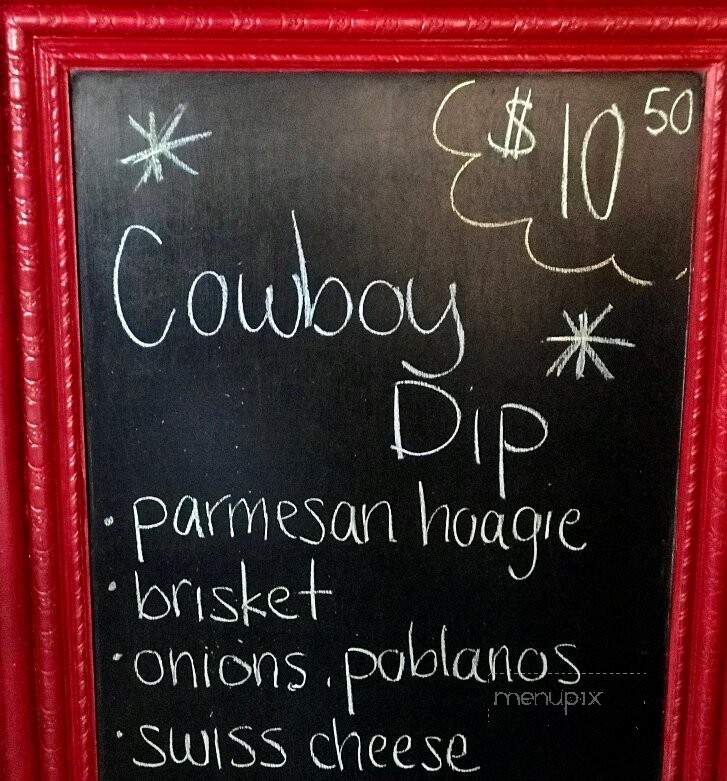 $10 50
Cowboy
Dip
· parmesan hoagie
· brisket
· onions, poblanos
menupix
· swiss cheese